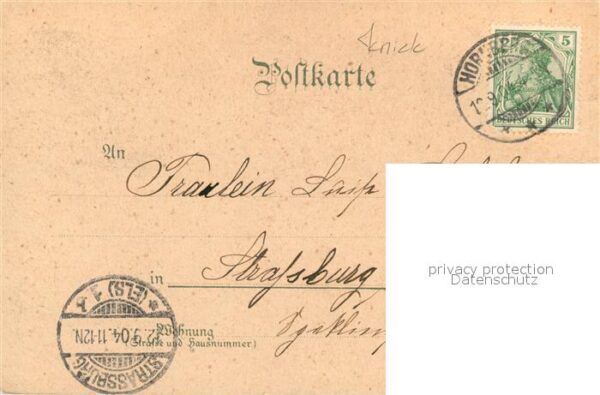 Knick
5
HORNBERG
DEUTSCHES REICH
Postkarte
An
Fräulein
in Straßburg
Wohnung
(Straße und Hausnummer)
STRASSBURG * (ELS) 1 *
12.9.04.11-12N.
privacy protection
Datenschutz